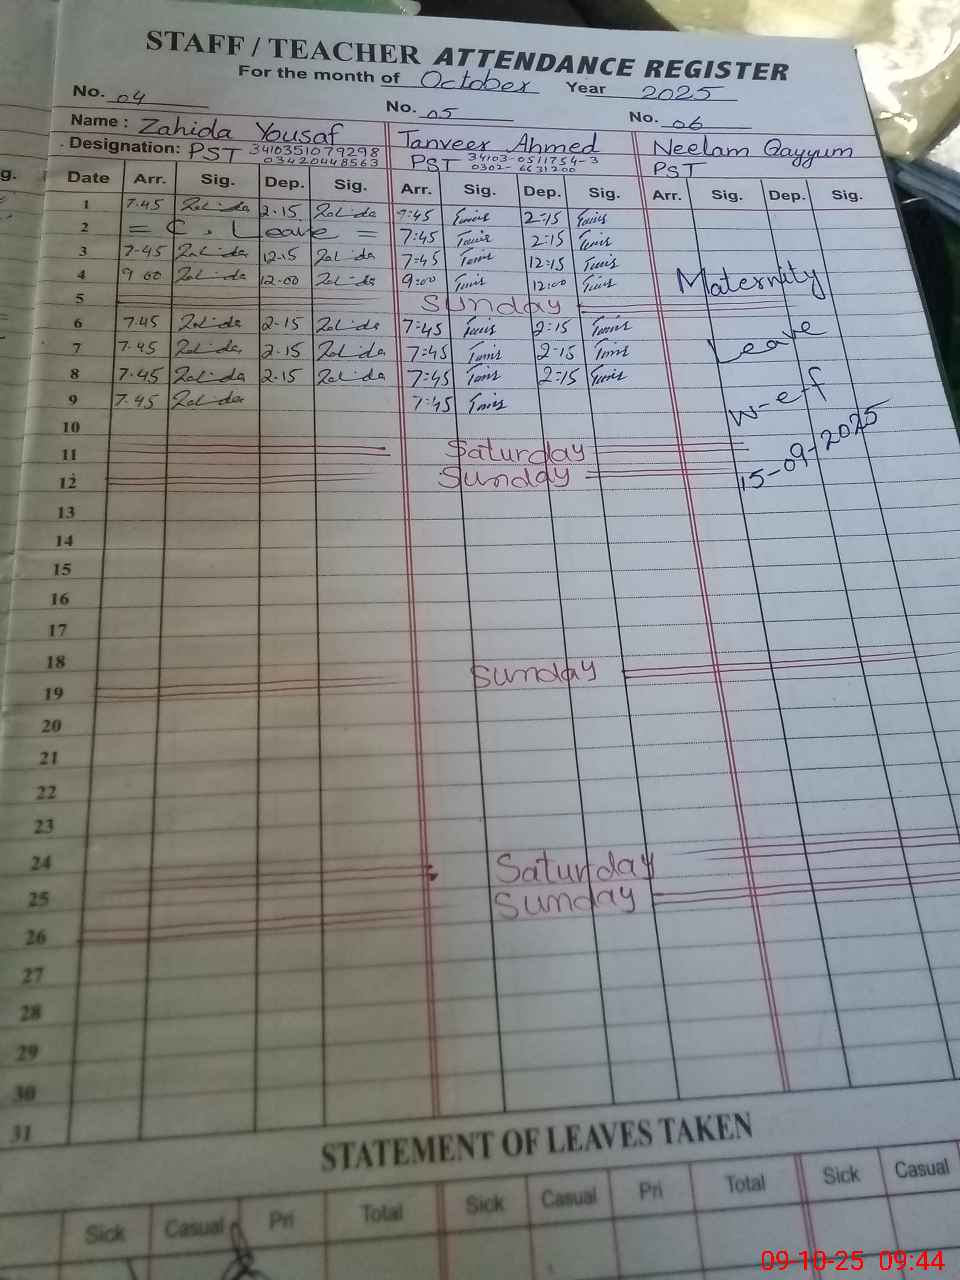 STAFF / TEACHER ATTENDANCE REGISTER
For the month of October Year 2025
No. 04 No. 05 No. 06
Name : Zahida Yousaf Tanveer Ahmed Neelam Qayyum
Designation: PST 3410351079298 03420448563 PST 34103-0511754-3 0302-6631200 PST
g. Date Arr. Sig. Dep. Sig. Arr. Sig. Dep. Sig. Arr. Sig. Dep. Sig.
1 7.45 Zahida 2.15 Zahida 7:45 2:15
2 = C. Leave = 7:45 2:15
3 7-45 Zahida 12.15 Zahida 7:45 12:15
4 9 00 Zahida 12.00 Zahida 9:00 12:00 Maternity
5 Sunday
6 7.45 Zahida 2.15 Zahida 7:45 2:15 Leave
7 7.45 Zahida 2.15 Zahida 7:45 2-15
8 7.45 Zahida 2.15 Zahida 7:45 2:15 w-e-f
9 7.45 Zahida 7:45
10 15-09-2025
11 Saturday
12 Sunday
13
14
15
16
17
18
19 Sunday
20
21
22
23
24
25 Saturday
26 Sunday
27
28
29
30
31
STATEMENT OF LEAVES TAKEN
Sick Casual Pri Total Sick Casual Pri Total Sick Casual
09-10-25 09:44